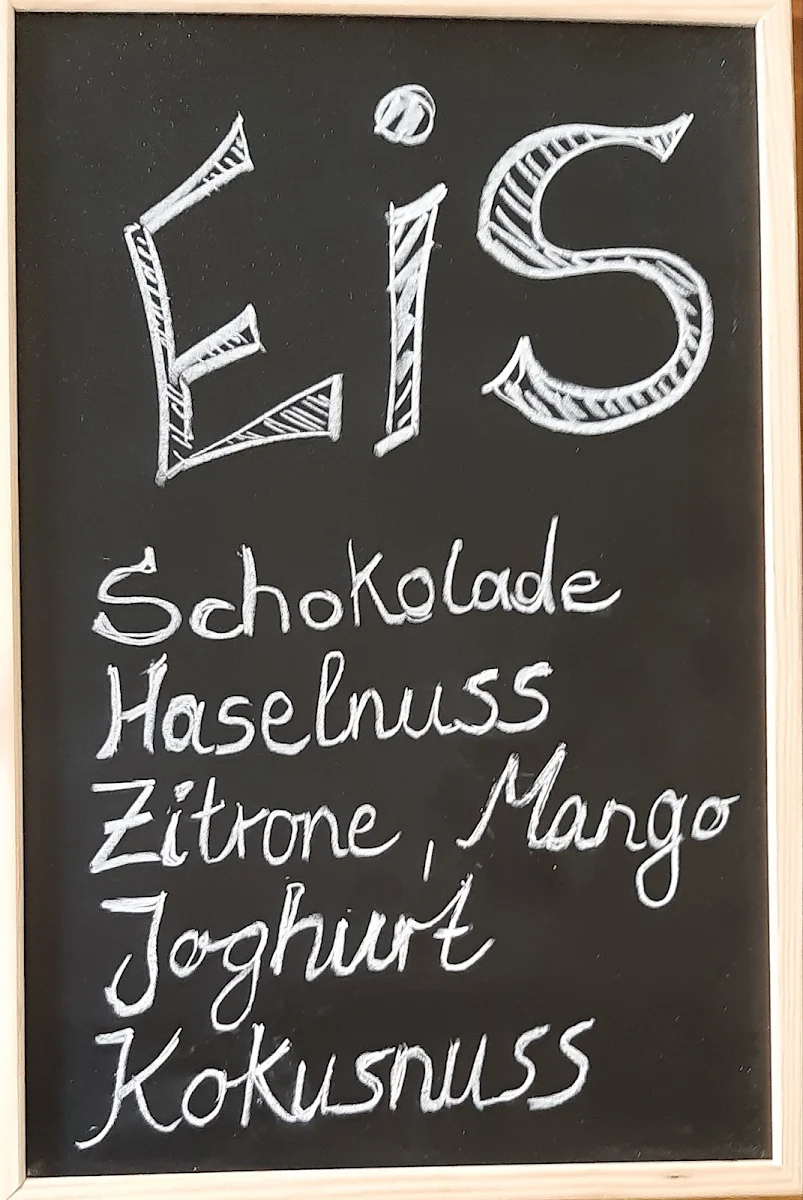 Eis
Schokolade
Haselnuss
Zitrone, Mango
Joghurt
Kokusnuss